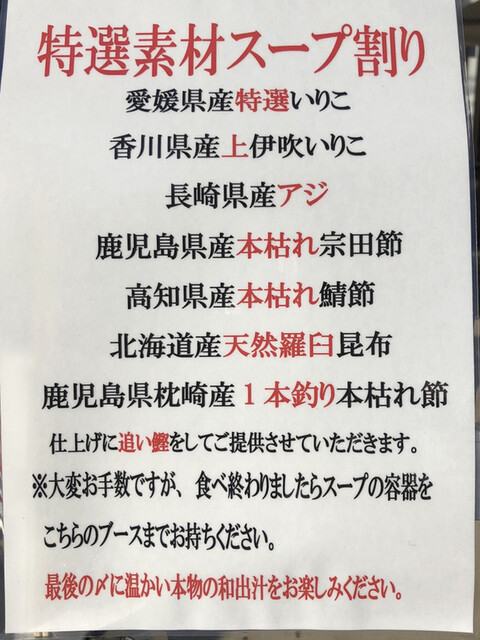 特選素材スープ割り
愛媛県産特選いりこ
香川県産上伊吹いりこ
長崎県産アジ
鹿児島県産本枯れ宗田節
高知県産本枯れ鯖節
北海道産天然羅臼昆布
鹿児島県枕崎産1本釣り本枯れ節
仕上げに追い鰹をしてご提供させていただきます。
※大変お手数ですが、食べ終わりましたらスープの容器を
こちらのブースまでお持ちください。
最後の〆に温かい本物の和出汁をお楽しみください。